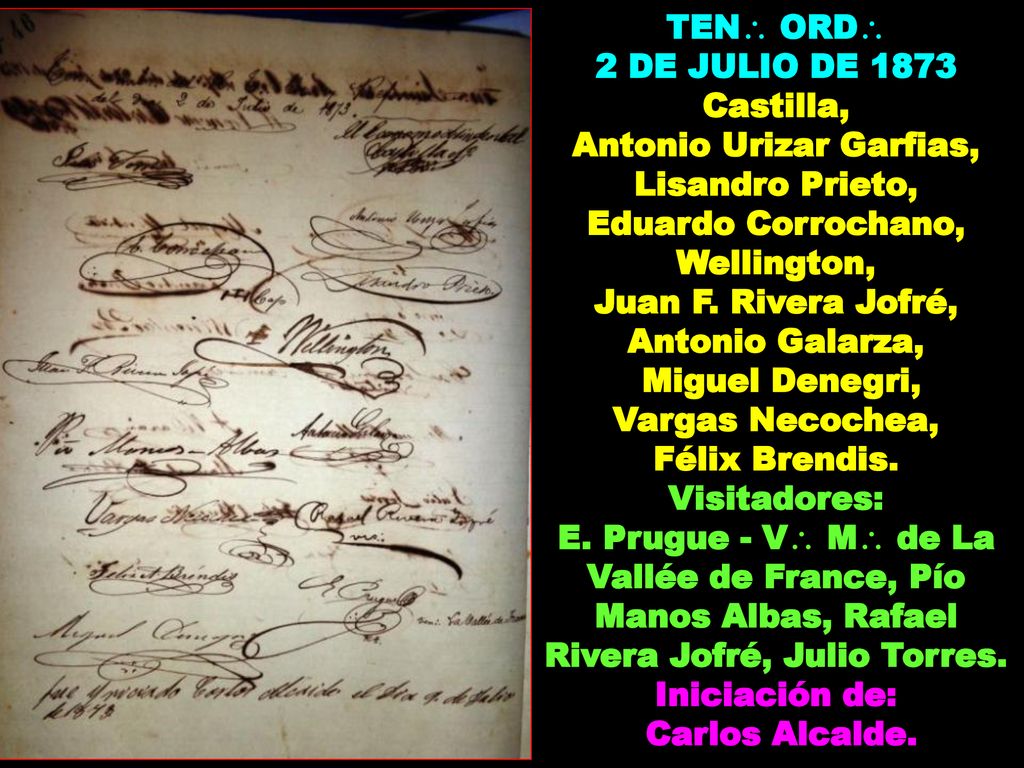 46
2 de Julio de 1873.
Castilla
Julio Torres
Antonio Urizar Garfias
E. Corrochano
Lisandro Prieto
Wellington
Juan F. Rivera Jofré
Antonio Galarza
Pío Manos-Albas
Vargas Necochea
Rafael Rivera Jofré
vis.
Felix A Brendis
E. Prugue
ven: La Vallée de France
Miguel Denegri
fue yniciado Carlos Alcalde el dia 2 de Julio
de 1873
TEN∴ ORD∴
2 DE JULIO DE 1873
Castilla,
Antonio Urizar Garfias,
Lisandro Prieto,
Eduardo Corrochano,
Wellington,
Juan F. Rivera Jofré,
Antonio Galarza,
Miguel Denegri,
Vargas Necochea,
Félix Brendis.
Visitadores:
E. Prugue - V∴ M∴ de La
Vallée de France, Pío
Manos Albas, Rafael
Rivera Jofré, Julio Torres.
Iniciación de:
Carlos Alcalde.